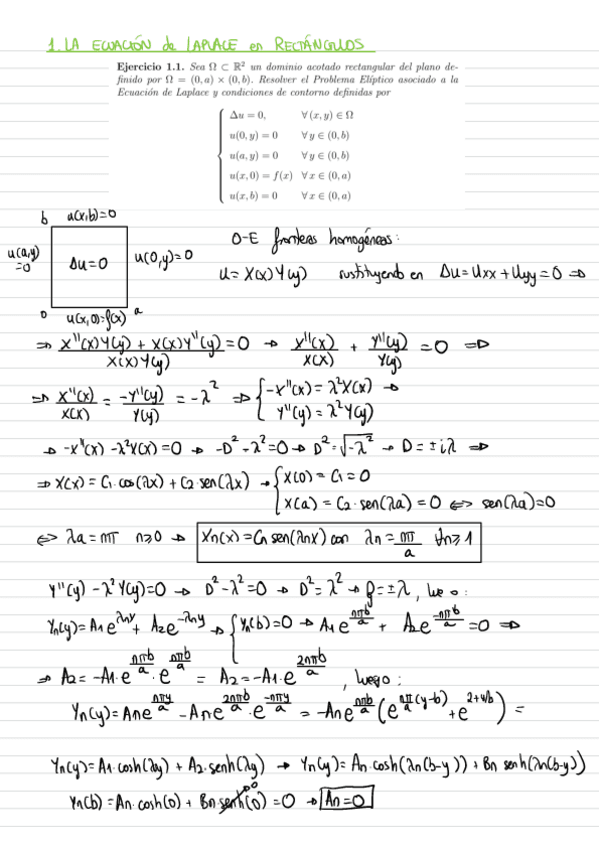 1. LA ECUACIÓN de LAPLACE en RECTÁNGULOS
Ejercicio 1.1. Sea Ω ⊂ ℝ² un dominio acotado rectangular del plano de-
finido por Ω = (0, a) × (0, b). Resolver el Problema Elíptico asociado a la
Ecuación de Laplace y condiciones de contorno definidas por
Δu = 0, ∀(x, y) ∈ Ω
u(0, y) = 0 ∀ y ∈ (0, b)
u(a, y) = 0 ∀ y ∈ (0, b)
u(x, 0) = f(x) ∀ x ∈ (0, a)
u(x, b) = 0 ∀ x ∈ (0, a)
b u(x,b)=0
u(a,y)=0 Δu=0 u(0,y)=0
0 u(x,0)=f(x) a
O-E fronteras homogéneas:
u=X(x)Y(y) sustituyendo en Δu=Uxx+Uyy=0 ⇒
⇒ X''(x)Y(y) + X(x)Y''(y) / X(x)Y(y) = 0 → X''(x)/X(x) + Y''(y)/Y(y) = 0 ⇒
⇒ X''(x)/X(x) = -Y''(y)/Y(y) = -λ² ⇒ { -X''(x) = λ²X(x) →
Y''(y) = λ²Y(y)
→ -X''(x) -λ²X(x)=0 → -D²-λ²=0 → D²=√-λ² → D=±iλ ⇒
⇒ X(x)=C1·cos(λx)+C2·sen(λx) → { X(0)=C1=0
X(a)=C2·sen(λa)=0 ⇔ sen(λa)=0
⇔ λa=nπ n≥0 → Xn(x)=Cn sen(λnx) con λn=nπ/a ∀n≥1
Y''(y) -λ²Y(y)=0 → D²-λ²=0 → D²=λ² → D=±λ,
Yn(y)=A1e^{λny}+A2e^{-λny} → { Yn(b)=0 → A1e^{nπb/a} + A2e^{-nπb/a} =0 ⇒
⇒ A2=-A1·e^{nπb/a}·e^{nπb/a} = A2=-A1·e^{2nπb/a}, luego:
Yn(y)=Ane^{nπy/a} -Ane^{2nπb/a}·e^{-nπy/a} = -Ane^{nπb/a}(e^{nπ/a(y-b)} +e
Yn(y)=A1·cosh(λy)+A2·senh(λy) → Yn(y)=An cosh(λn(b-y))+Bn senh(λn(b-y))
Yn(b)=An·cosh(0)+Bn senh(0)=0 → An=0